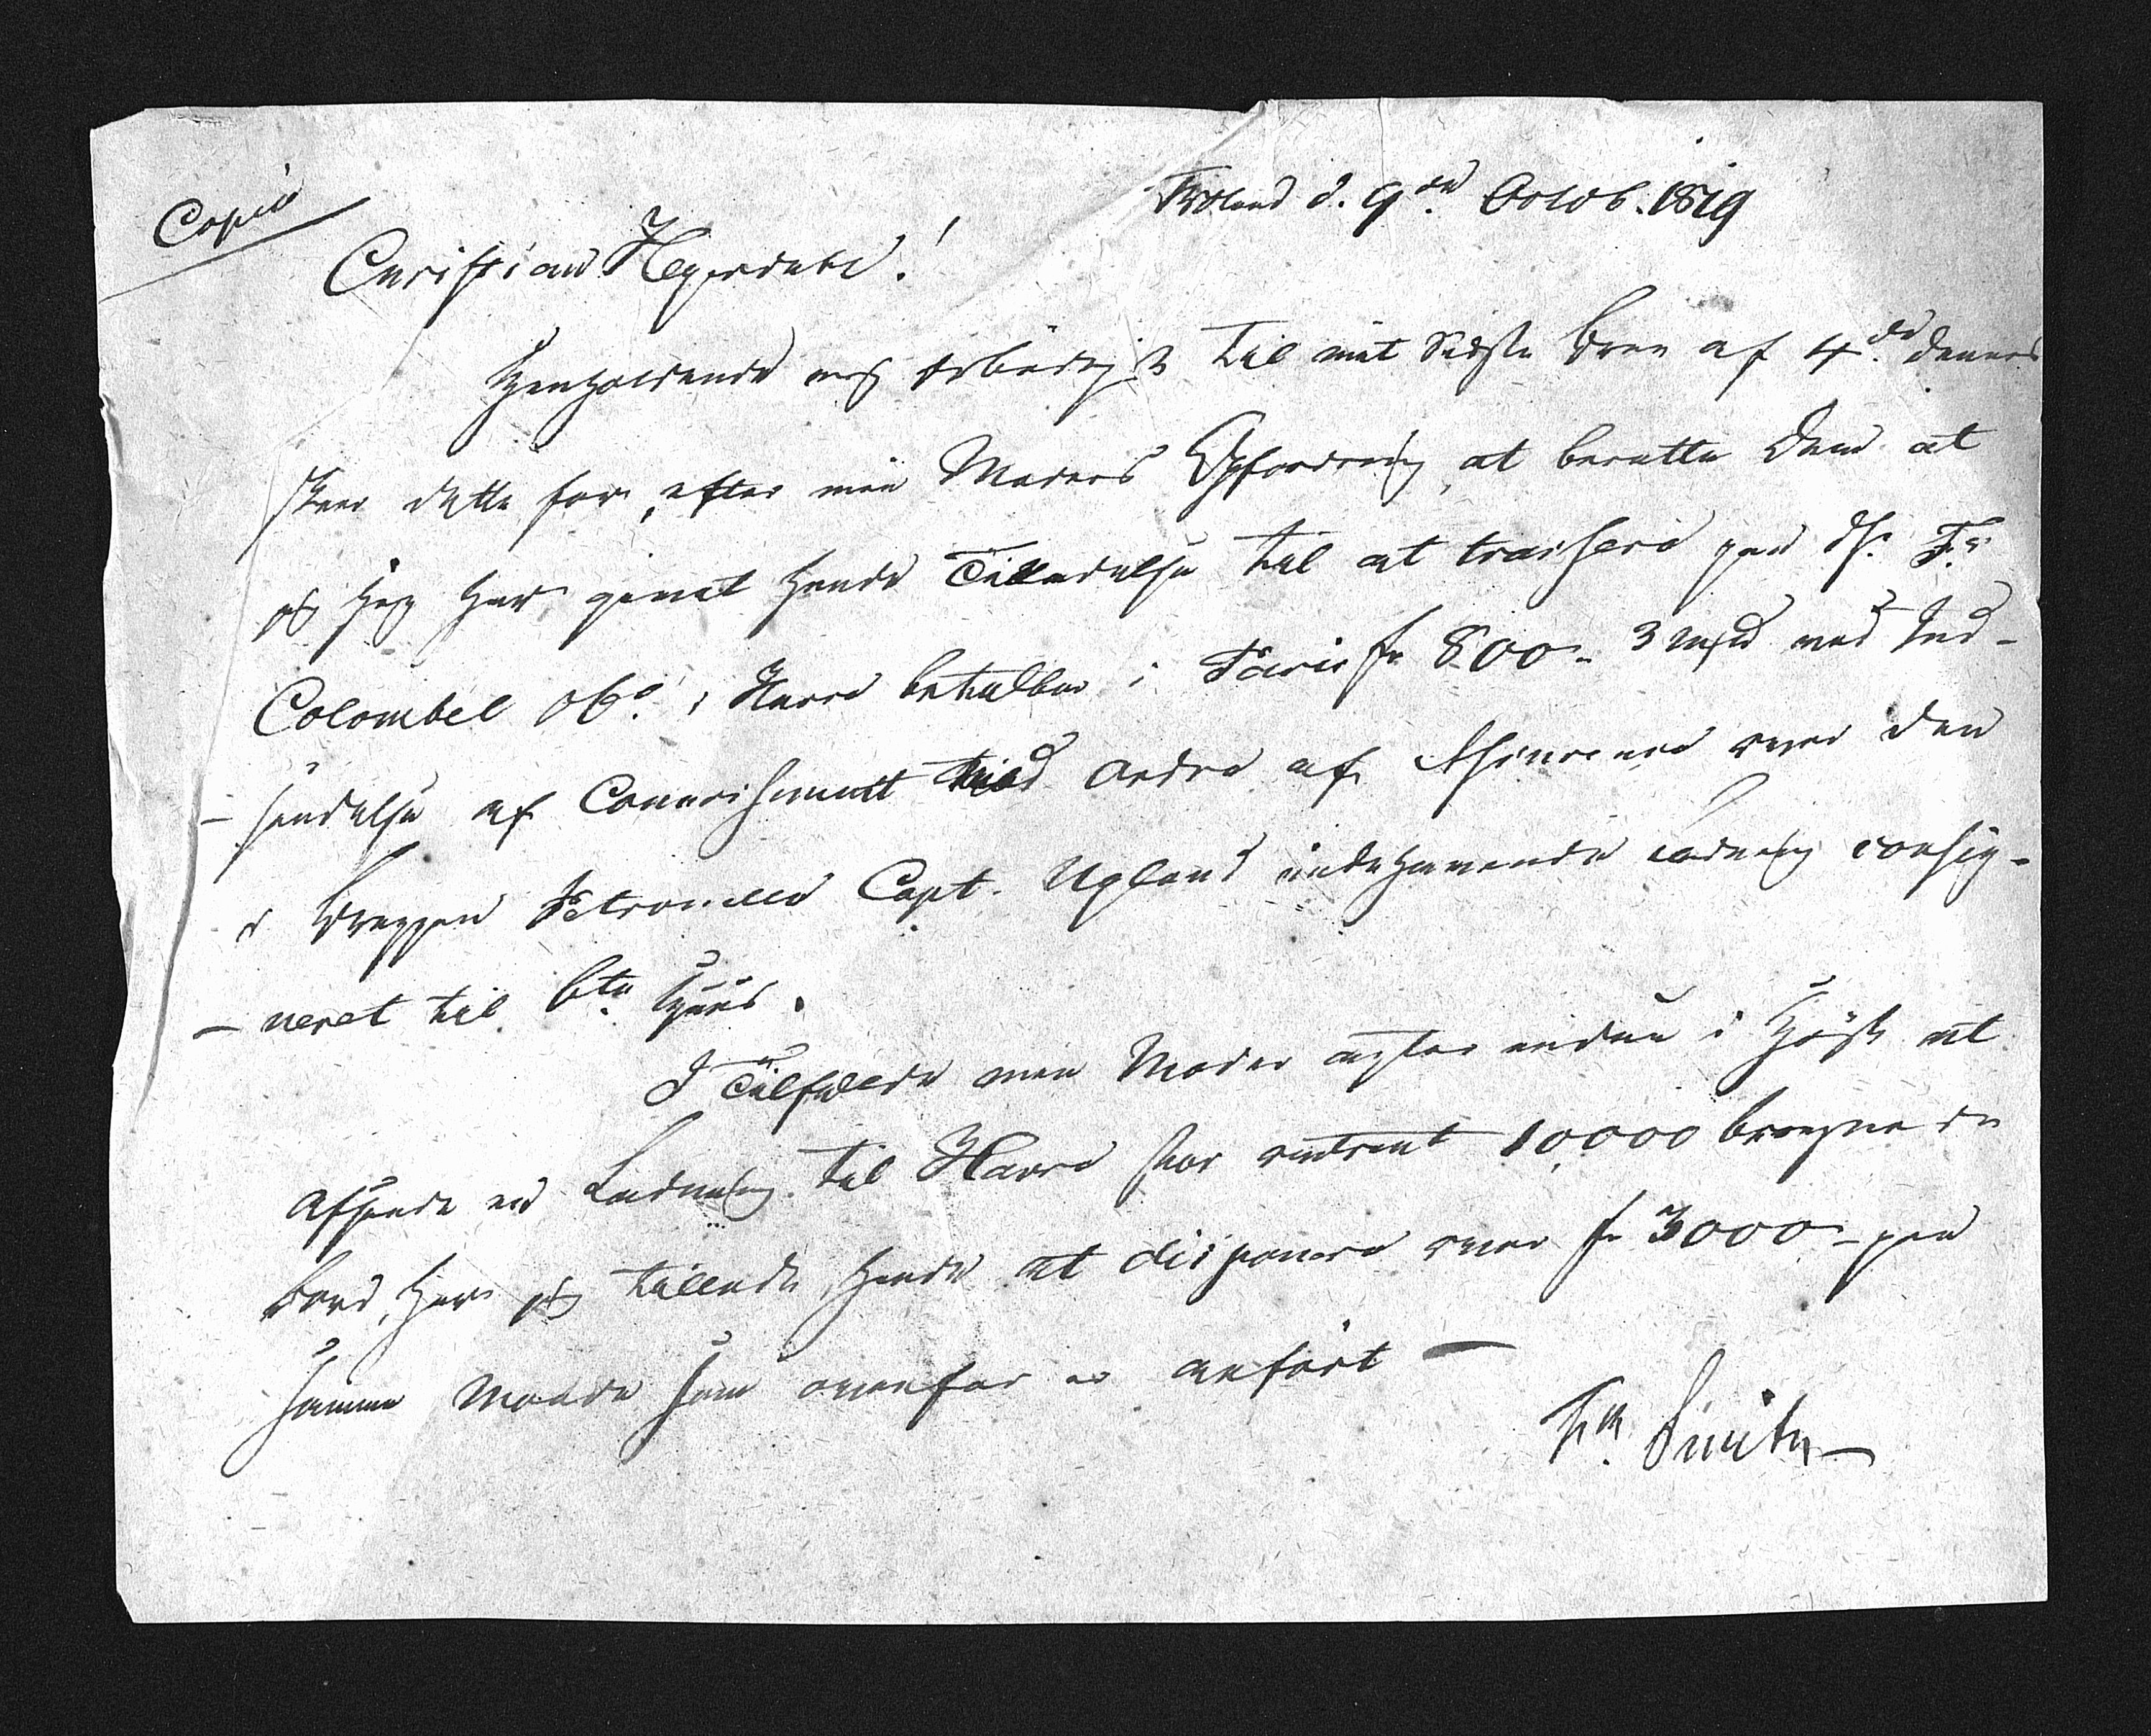 Copie
Froland d. 9de Octob. 1819
Christian Hegerdahl!
Henholdende mig ærbødigst til mit Sidste Brev af 4de dennes
skeer dette for, efter min Moders Opfordring, at berette Dem at
og jeg har givet hende Tilladelse til at traissere paa Hr. Fr.
Colombel & Co. i Havre betalbar i Paris fr 800 - 3 mdr mod Ind-
- sendelse af Connoisement med ordre af Assurance over den
i Briggen Petronelle Capt. Ugland indehavende Ladning consig-
- neret til bte Huus.
I Tilfælde min Moder agter endnu i Høst at
afsende en Ladning til Havre stor omtrent 10,000 brægne
Bord, har jeg tilladt hende at disponere over fr 3000 - paa
samme Maade som ovenfor er anført —
Fr. Smith